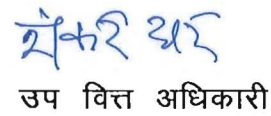 शंकरी धर
उप वित्त अधिकारी